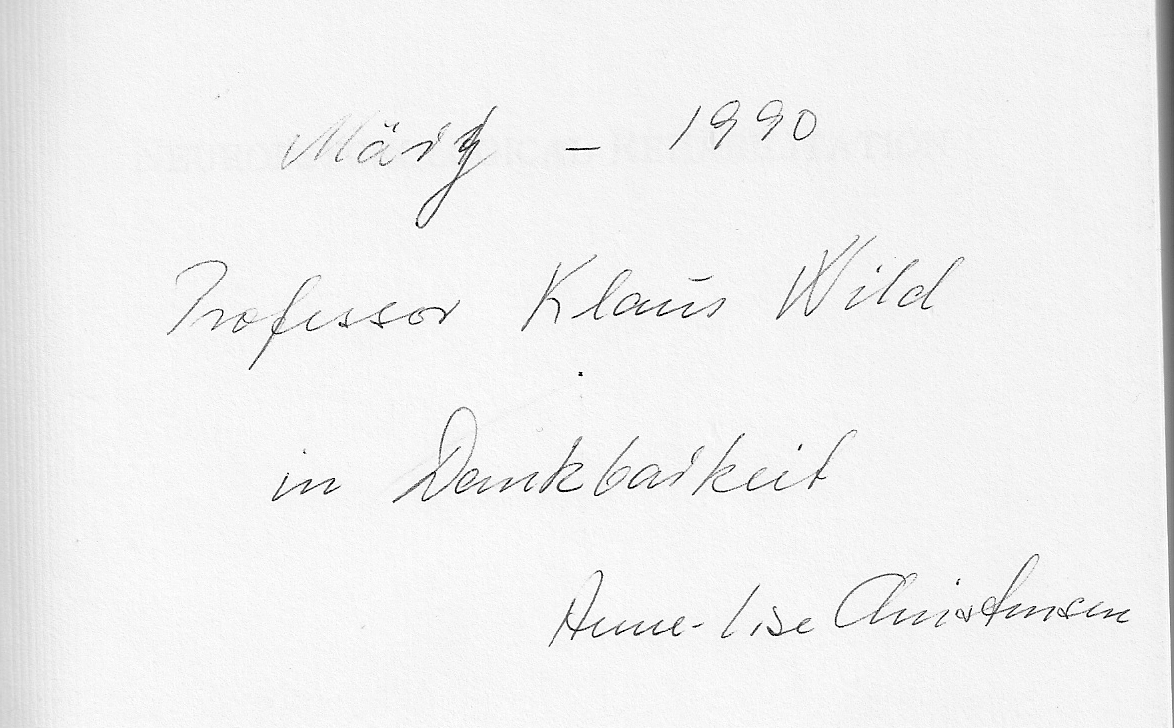 März – 1990
Professor Klaus Wild
in Dankbarkeit
Anne-Lise Christensen